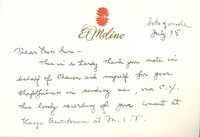 El Molino
Sotogrande
July 15.
Dear Miss
This is a tardy thank you note in
behalf of Chawn and myself for your
thoughtfulness in sending us, via C.Y.
this lovely recording of your concert at
Kresge Auditorium at M.I.T.